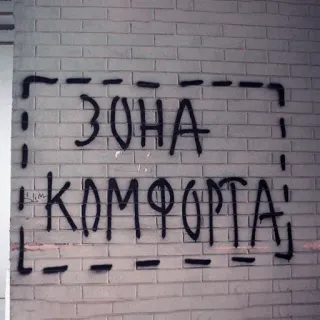 ЗОНА
КОМФОРТА